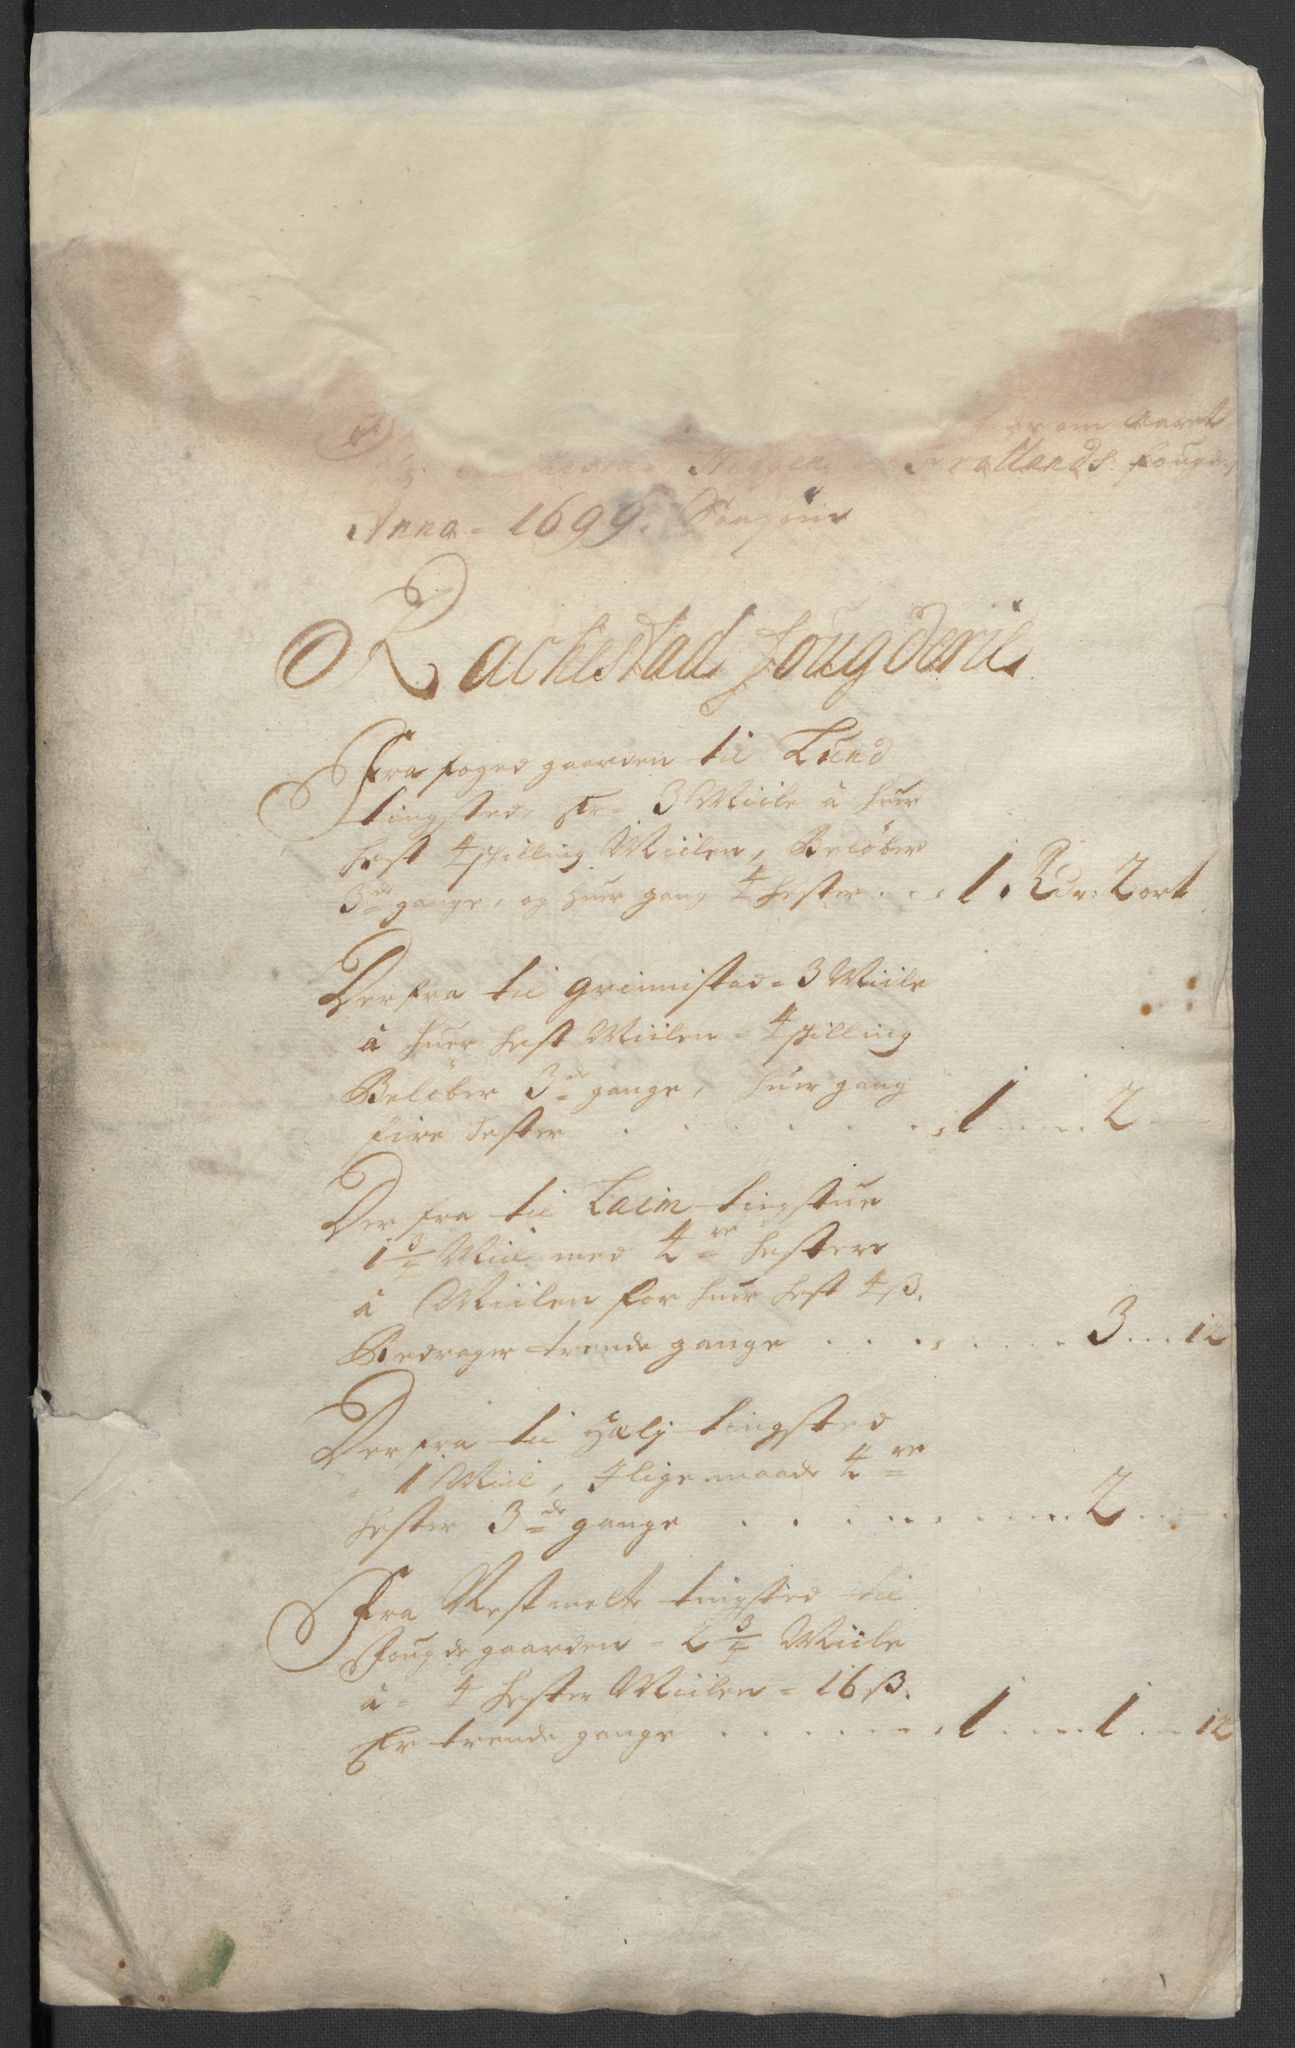 er om Aaret
Heggen Frøllands fougderj
Anno = 1699. Saasom
Rachestad fougderie
Fra foged gaarden til Lund
tingsted, Er = 3 Miile â huer
hest 4 skilling Miilen, Beløber
3de gange, og huer gang 4 hester . . . 1 Rdr: 2 ort
Der fra til Grimistad = 3 Miile
â huer hest Miilen = 4 skilling
Beløber 3de gange, huer gang
fire hester . . . . . . . 1 . . . . 2
Der fra til Laim tingstue
1 3/4 Miil med 4re hestere
â Miilen for huer hest 4 ß.
Bedrager trende gange . . . . . . . 3 . . . 12
Der fra til Hælj tingsted
= 1 Miil, I lige maade 4re
hester 3de gange . . . . . . . . . . 2 . . . .
Fra Restmelte tingsted til
Fougde gaarden = 2 3/4 Miile
â = 4 hester Miilen = 16 ß.
Er trende gange . . . . . . 1 . . . . 1 . . 12